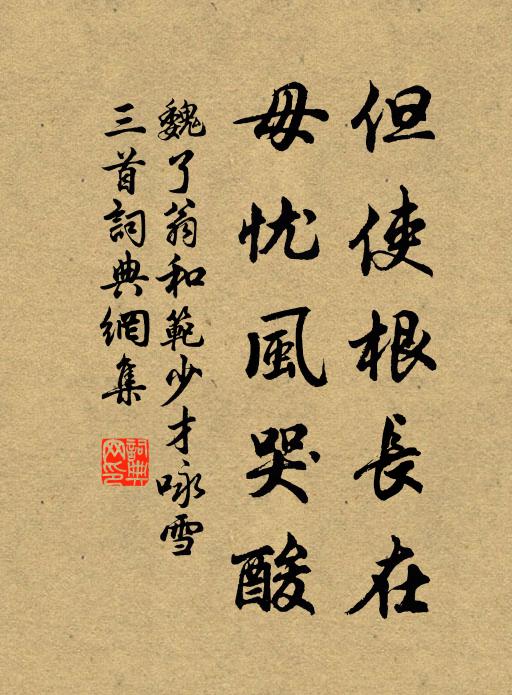 但使根長在
毋忧風哭酸
魏了翁和範少才咏雪
三首詞典網集
詞典网印